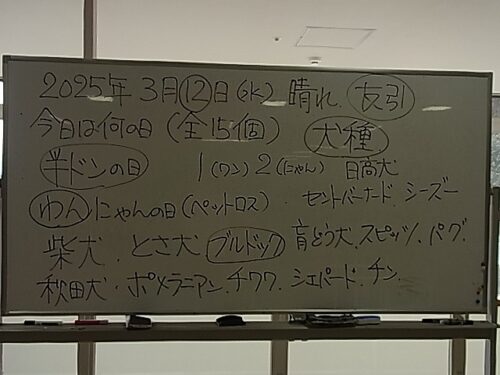 2025年 3月12日(水) 晴れ 友引
今日は何の日(全15個) 犬種
半ドンの日 1(ワン) 2(にゃん) 日高犬
わんにゃんの日(ペットロス)・セントバーナード、シーズー
柴犬、とさ犬 ブルドック 盲どう犬、スピッツ、パグ、
秋田犬・ポメラニアン、チワワ、シェパード、チン、